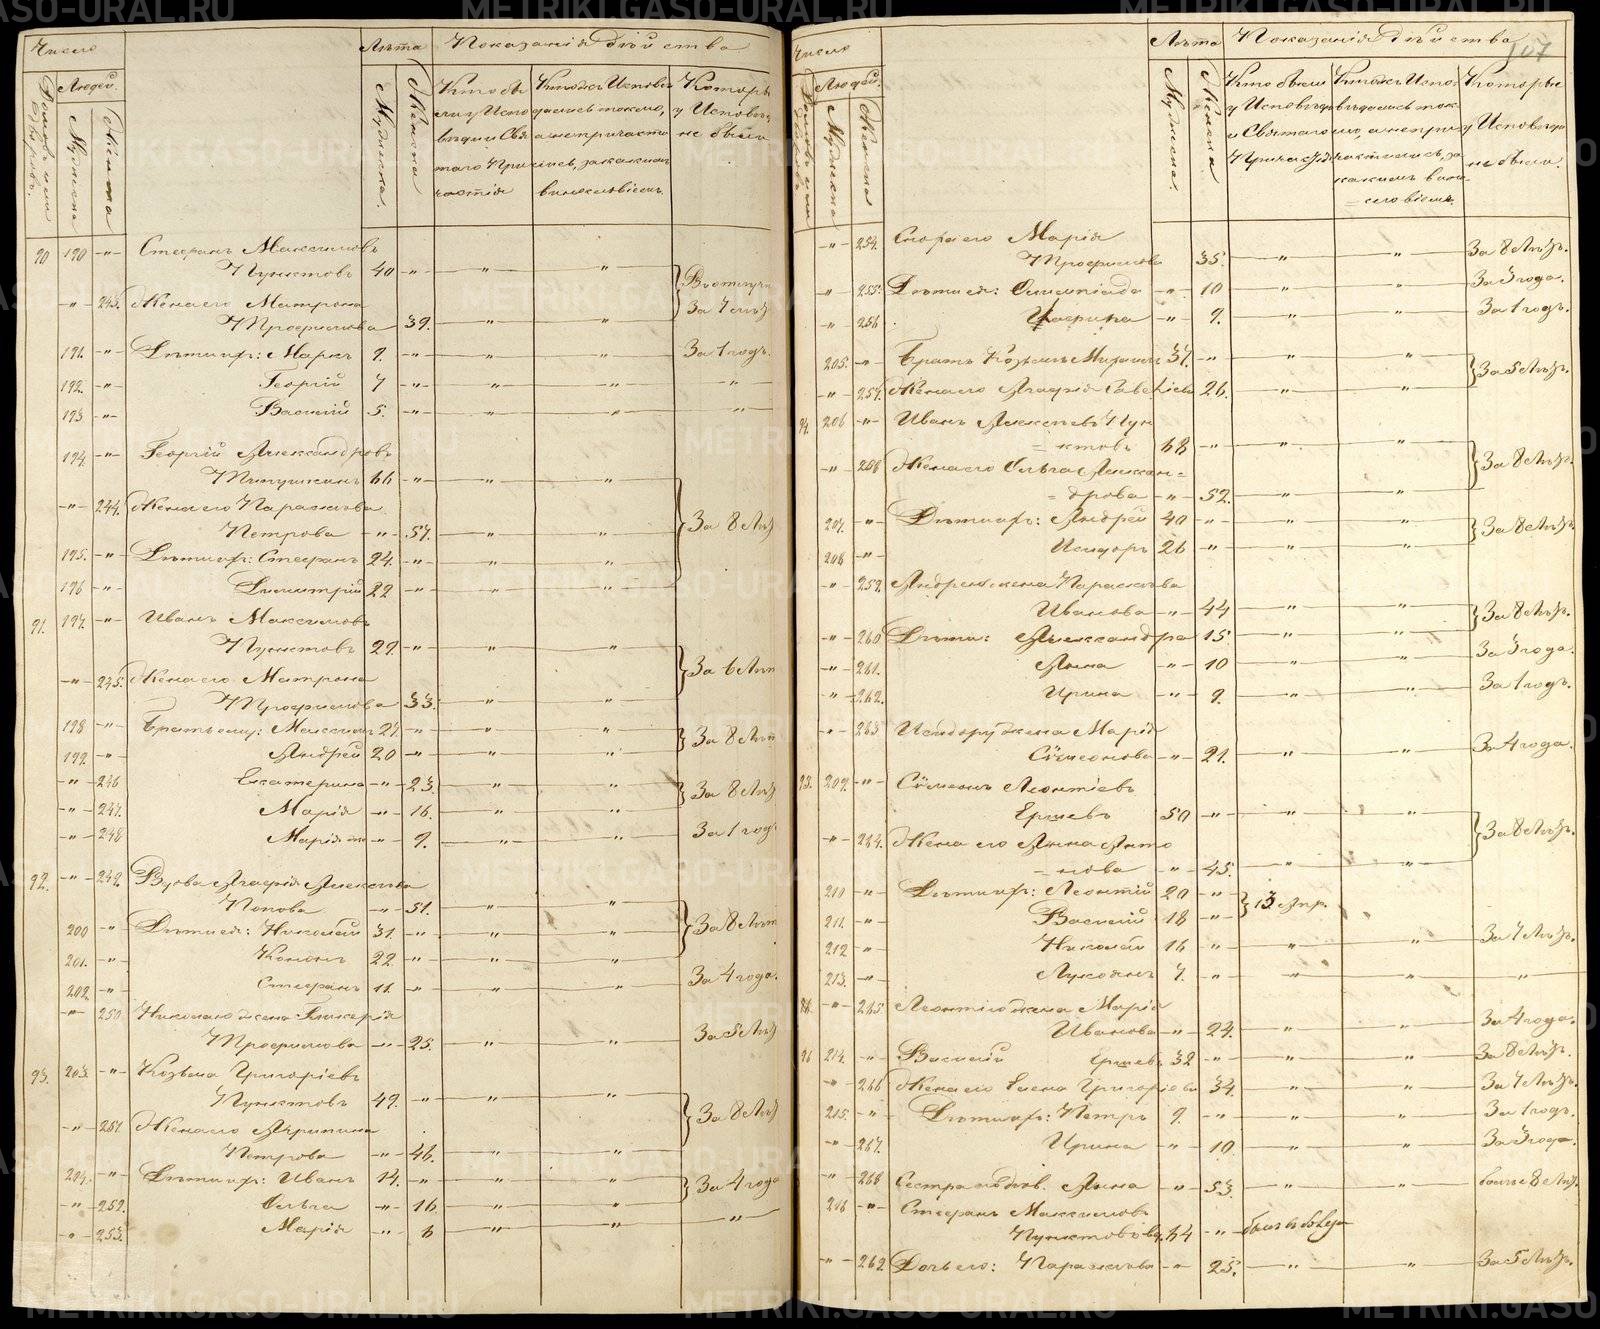 Число
Лѣта Показанія дѣйства
Людей.
Домовъ или дворовъ. Мужеска Женска
Мужеска. Женска
Кто были у Исповѣди и Святаго Причастія
Кто же Исповѣдались токмо, а не причастились, за какимъ винословіемъ.
Которые у Исповѣди не были
90 190 -"- Стефанъ Максимовъ
Пунктовъ 40 -"- " "
-"- 243. Жена его Матрона
Трофимова 39. " " За 7 лѣтъ
191. -"- Дѣти ихъ: Маркъ 9. -"- " " За 1 годъ.
192. -"- Георгій 7 -"- " " "
193 -"- Василій 5. -"- " " "
194. -"- Георгій Александровъ
66 -"- " "
-"- 244. Жена его Параскева
Петрова -"- 57. " " За 8 лѣтъ
195. -"- Дѣти ихъ: Стефанъ 24. -"- " "
196 -"- Димитрій 22 -"- " "
91. 197. -"- Иванъ Максимовъ
Пунктовъ 29. -"- " "
-"- 245. Жена его Матрона За 6 лѣтъ
Трофимова 33. " "
198 -"- Братья ему: Максимъ 27. -"- " " За 8 лѣтъ
199. -"- Андрей 20 -"- " "
-"- 246 Екатерина -"- 23. " " За 8 лѣтъ
-"- 247. Марія -"- 16. " "
-"- 248 Марія же -"- 9. " " За 1 годъ
92. -"- 249. Вдова Агафія Алексѣева
Попова -"- 51. " "
200 -"- Дѣти ея: Николай 31. -"- " " За 8 лѣтъ
201. -"- Кононъ 22. -"- " "
202. -"- Стефанъ 11. -"- " " За 4 года.
-"- 250 Николаю жена Гликерія
Трофимова -"- 25. " " За 5 лѣтъ
93. 203. -"- Козьма Григорьевъ
Пунктовъ 49. -"- " "
-"- 251. Жена его Агрипина За 8 лѣтъ
Петрова -"- 46. " "
204. -"- Дѣти ихъ: Иванъ 14. -"- " " За 4 года
-"- 252. Ольга -"- 16. " "
-"- 253. Марія -"- 6 " " "
Число
Лѣта Показанія дѣйства 107
Людей.
Мужеска Женска
Мужеска. Женска
Кто были у Исповѣди и Святаго Причастія
Кто же Исповѣдались токмо, а не причастились, за какимъ винословіемъ.
Которые у Исповѣди не были.
-"- 254. Сноха его Марія
Трофимова 35. " " За 8 лѣтъ.
-"- 255. Дѣти ея: Олимпіада -"- 10 " " За 3 года.
-"- 256 -"- 9. " " За 1 годъ.
205. -"- Братъ Козьмы Михаилъ 37. -"- " " За 5 лѣтъ.
-"- 257. Жена его Агафія Савельева 26. " "
94. 206 -"- Иванъ Алексѣевъ Пун
ктовъ 68 -"- " "
-"- 258 Жена его Ольга Алексан= За 8 лѣтъ.
=дрова -"- 52. " "
207. -"- Дѣти ихъ: Андрей 40 -"- " " За 8 лѣтъ.
208 -"- Исидоръ 26 -"- " "
-"- 259. Андрею жена Параскева
Иванова -"- 44 " " За 8 лѣтъ.
-"- 260 Дѣти: Александра 15 " "
-"- 261. Анна -"- 10 " " За 3 года.
-"- 262. Ирина -"- 9. " " За 1 годъ.
-"- 263 Исидору жена Марія
Сѵмеонова -"- 21. " " За 4 года.
95. 209. -"- Сѵмеонъ Леонтіевъ
Ершевъ 50 -"- " "
-"- 264. Жена его Анна Анто За 8 лѣтъ.
=нова -"- 45. " "
210 -"- Дѣти ихъ: Леонтій 20 -"- 13 Апр.
211. -"- Василій 18 -"-
212 -"- Николай 16 -"- " " За 7 лѣтъ.
213. -"- Лукоянъ 7. -"- " " "
-"- 265. Леонтію жена Марія
Иванова -"- 24. " " За 4 года.
96 214. -"- Василій Ершевъ 32 -"- " " За 8 лѣтъ.
-"- 266 Жена его Елена Григорьева 34. " " За 7 лѣтъ.
215. -"- Дѣти ихъ: Петръ 9. -"- " " За 1 годъ.
-"- 267. Ирина -"- 10 " " За 3 года.
-"- 268 Сестра Анна -"- 53. " " болѣе 8 лѣтъ.
216 -"- Стефанъ Максимовъ
Пунктовъ вд. 64 -"-
-"- 269. Дочь его: Параскева -"- 25. " " За 5 лѣтъ.
METRIKI.GASO-URAL.RU